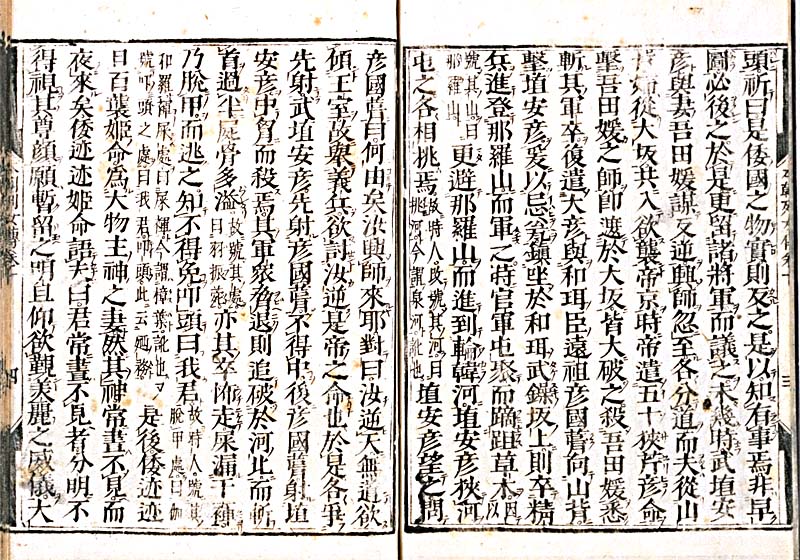 頭祈曰是倭國之物實則反之是以知有事焉非早
圖必後之於是更留諸將軍而議之未幾時武埴安
彥與妻吾田媛謀反逆興師忽至各分道而夫從山
婦從大坂共入欲襲帝京時帝遣五十狹芹彥命
擊吾田媛之師即遮於大坂皆大破之殺吾田媛悉
斬其軍卒復遣大彥與和珥臣遠祖彥國葺向山背
擊埴安彥爰以忌瓮鎮坐於和珥武鐰坂上則率精
兵進登那羅山而軍之時官軍屯聚而蹢跙草木因
號其山曰那羅山更避那羅山而進到輪韓河埴安彥挾河
屯之各相挑焉故時人改號其河曰挑河今謂泉河訛也埴安彥望之問
彥國葺曰何由矣汝興師來耶對曰汝逆天無道欲
傾王室故擧義兵欲討汝逆是帝之命也於是各爭
先射武埴安彥先射彥國葺不得中後彥國葺射埴
安彥中胷而殺焉其軍衆脅退則追破於河北而斬
首過半屍骨多溢故號其處曰羽振苑亦其卒怖走屎漏于褌
乃脫甲而逃之知不得免叩頭曰我君故時人號其脫甲處曰伽
和羅褌屎處曰屎褌今謂樟葉訛也又號叩頭之處曰我君叩頭此云迺務是後倭迹迹
日百襲姬命爲大物主神之妻然其神常晝不見而
夜來矣倭迹迹姬命語夫曰君常晝不見者分明不
得視其尊顏願暫留之明旦仰欲覲美麗之威儀大